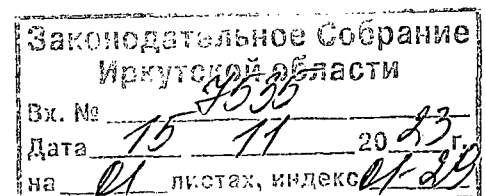 Законодательное Собрание
Иркутской области
Вх. № 7535
Дата 15 11 2023 г.
на 01 листах, индекс 01-29